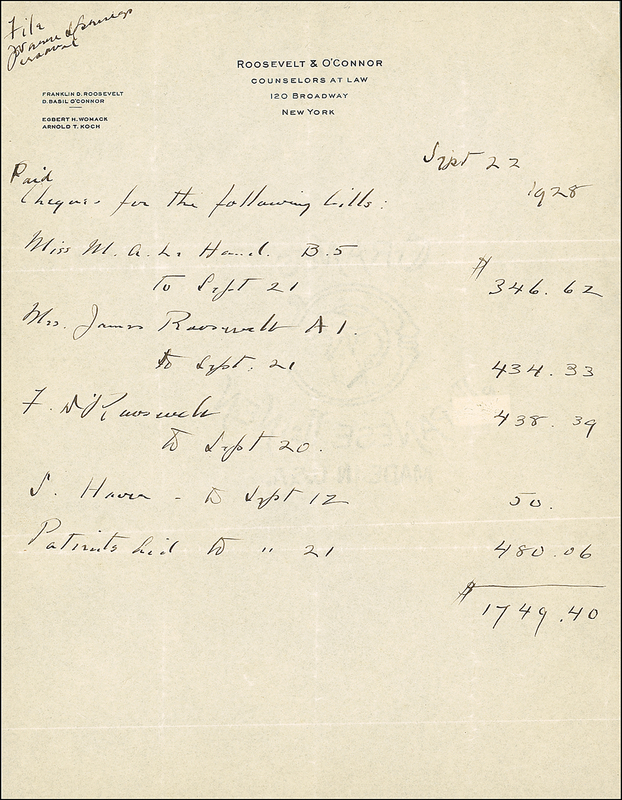 File
ROOSEVELT & O'CONNOR
COUNSELORS AT LAW
120 BROADWAY
NEW YORK
FRANKLIN D. ROOSEVELT
D. BASIL O'CONNOR
EGBERT H. WOMACK
ARNOLD T. KOCH
Sept 22
1928
Paid
Cheques for the following bills:
Miss M. A. Le Hand. B.5
to Sept 21 $346.62
Mrs. James Roosevelt A 1.
to Sept. 21 434.33
F. D. Roosevelt 438.39
to Sept 20.
S. Haven - to Sept 12 50.
Patients Aid to " 21 480.06
$1749.40
MADE IN U.S.A.